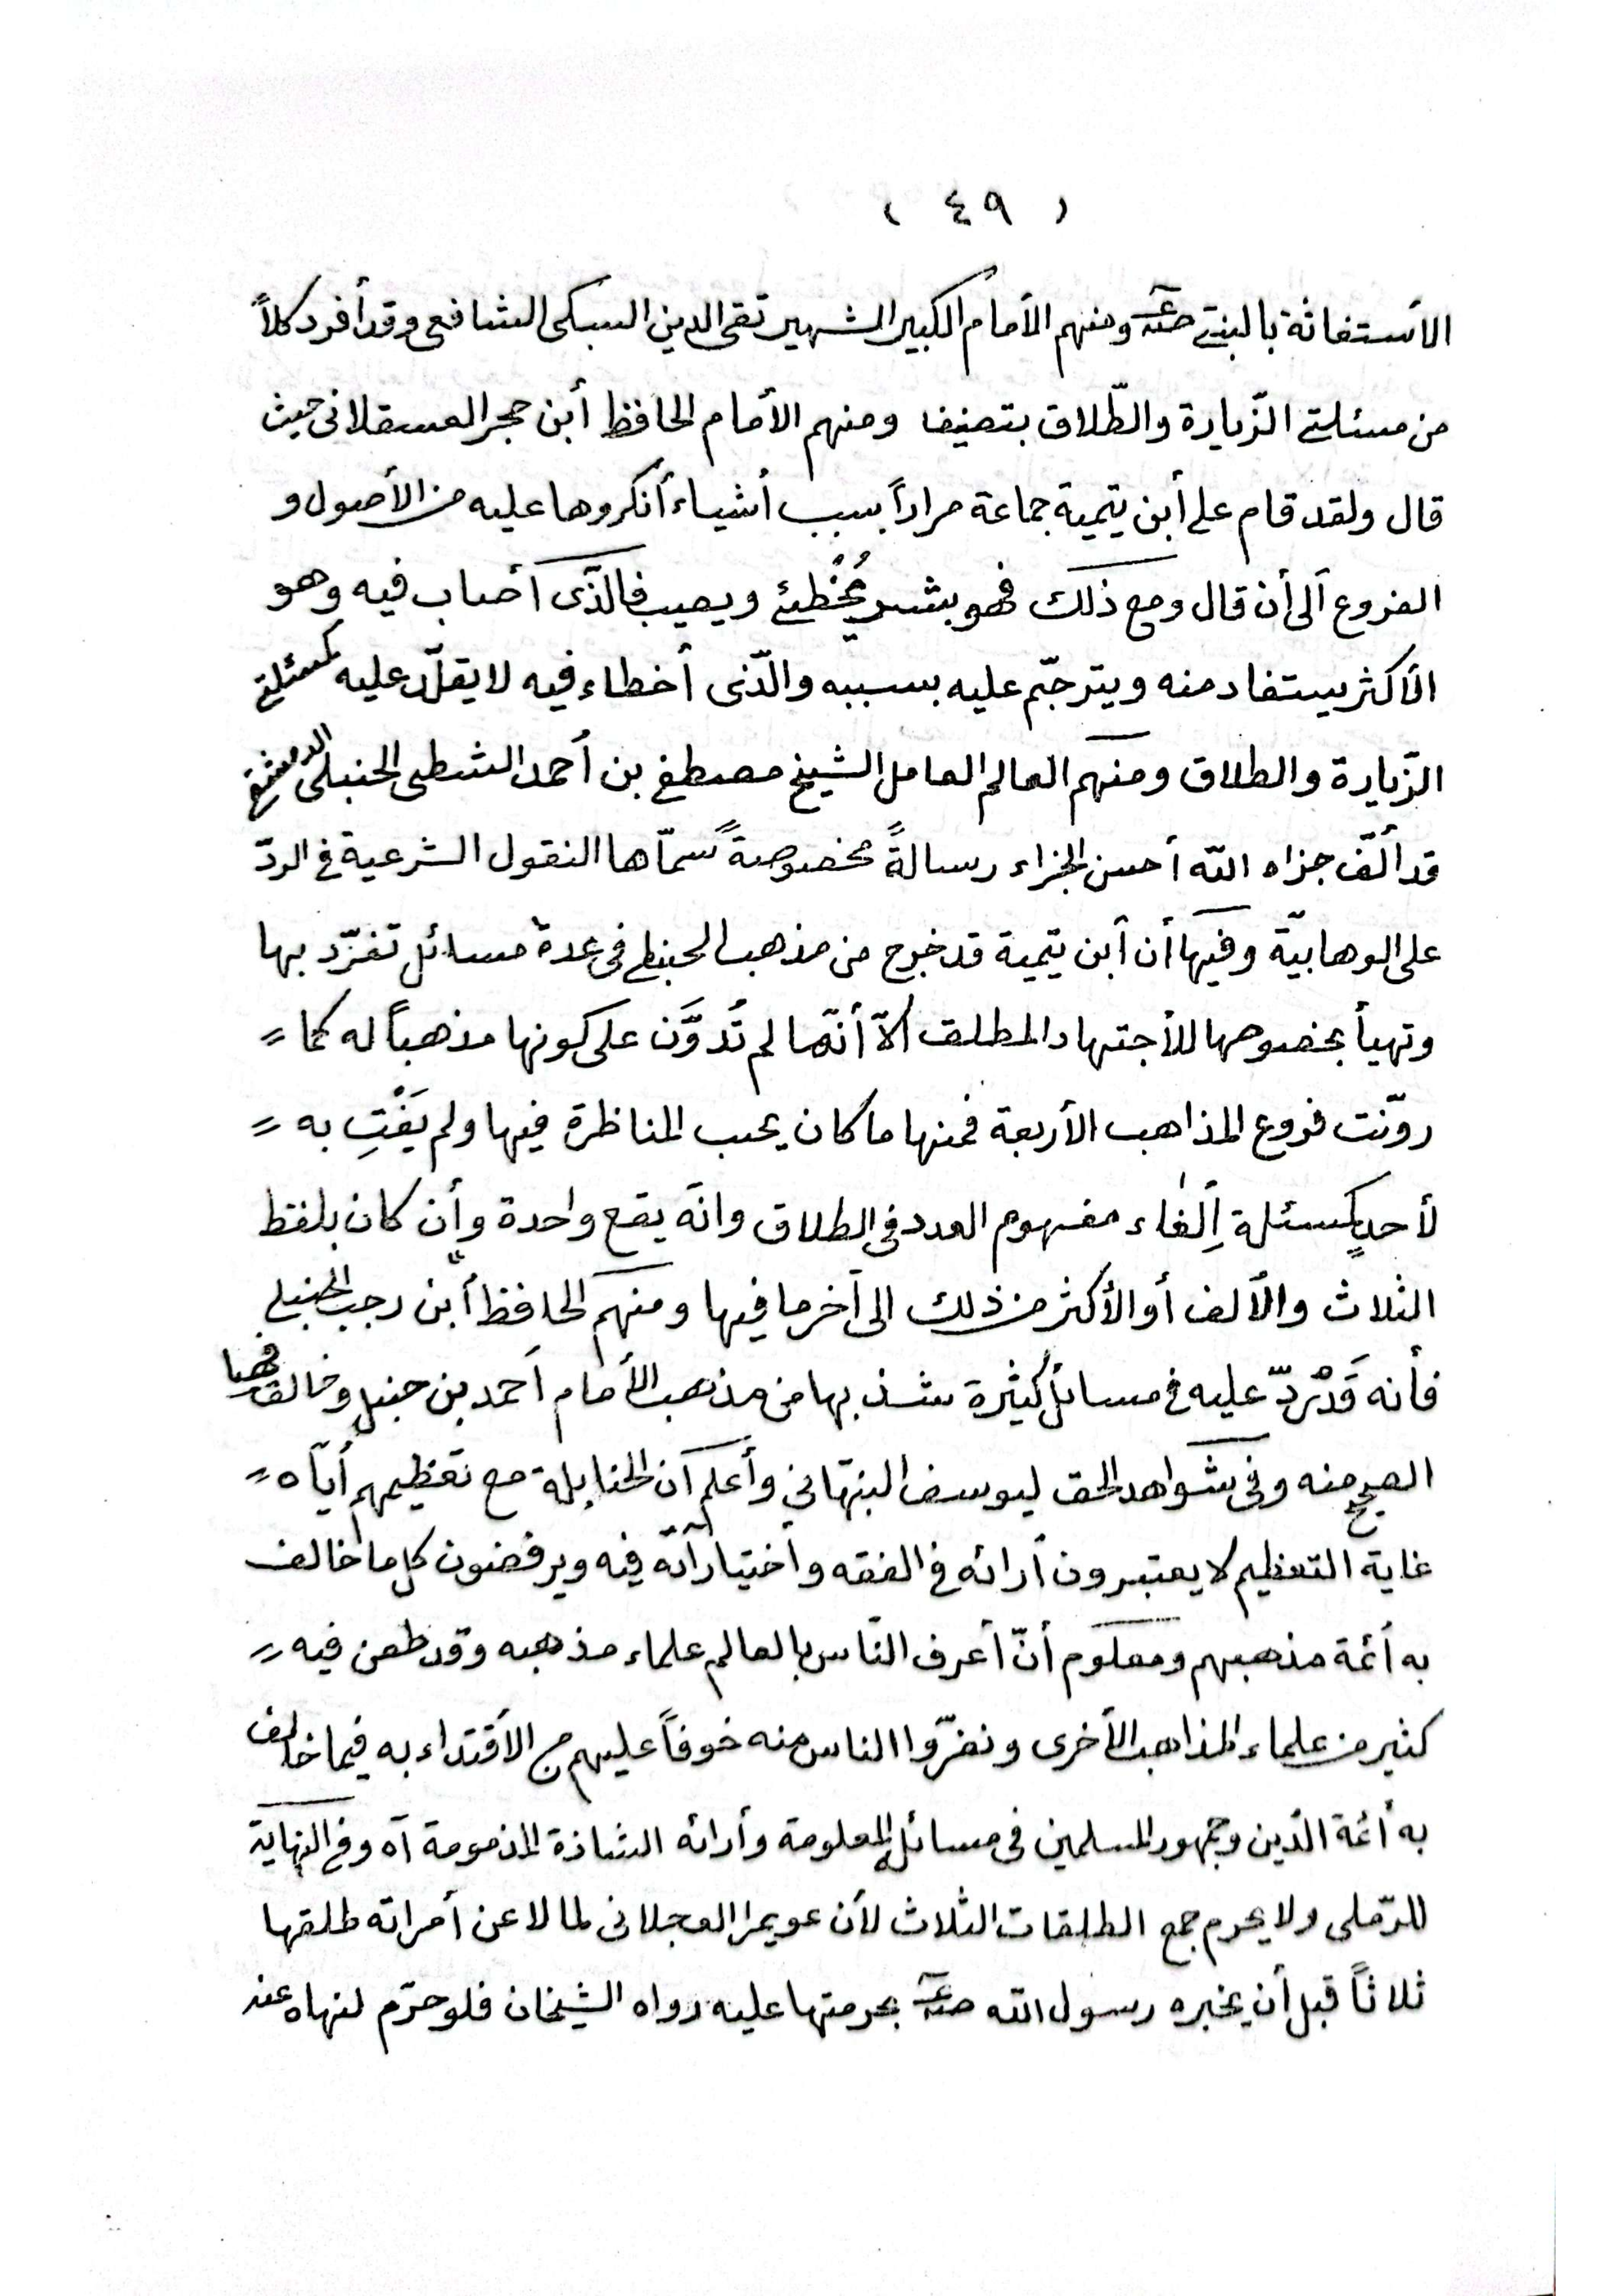 ( ٤٩ )
الأستغاثة بالنبيّ صلّعم ومنهم الأمام الكبير الشهير تقى الدين السبكى الشافعى وقد أفرد كلاً
من مسئلتى الزّيارة والطّلاق بتصنيف ومنهم الأمام الحافظ أبن حجر العسقلانى حيث
قال ولقد قام على أبن تيمية جماعة مراراً بسبب أشياء أنكروها عليه من الأصول و
الفروع ألى أن قال ومع ذلك فهو بشر يُخْطئ ويصيب فالّذى أصاب فيه وهو
الأكثر يستفاد منه ويترحّم عليه بسببه والّذى أخطاء فيه لا يقلّد عليه كمسئلتى
الزّيارة والطلاق ومنهم العالم العامل الشيخ مصطفى بن أحمد الشطى الحنبلى الدمشقى
قد ألّف جزاه الله أحسن الجزاء رسالةً مخصوصةً سمّاها النقول الشرعية فى الردّ
على الوهابيّة وفيها أن أبن تيمية قد خرج من مذهب الحنبلى فى عدة مسائل تفرّد بها
وتهيأ بخصوصها للأجتهاد المطلق ألاّ أنّها لم تُدوَّن على كونها مذهباً له كما =
دوّنت فروع المذاهب الأربعة فمنها ما كان يحب المناظرة فيها ولم يَفْتِ به =
لأحدٍ كمسئلة إلغاء مفهوم العدد فى الطلاق وانّه يقع واحدة وأن كان بلفظ
الثلاث والألف أو الأكثر من ذلك الى آخر ما فيها ومنهم الحافظ أبن رجب الحنبلى
فأنه قَدْ ردّ عليه فى مسائل كثيرة شذ بها من مذهب الأمام أحمد بن حنبل وخالف فيها
الصحيح منه وفى شواهد الحق ليوسف النبهاني وأعلم أن الحنابلة مع تعظيمهم أيّاه =
غاية التعظيم لا يعتبرون أرائه فى الفقه وأختياراته فيه ويرفضون كل ما خالف
به أئمة مذهبهم ومعلوم أنّ أعرف النّاس بالعالم علماء مذهبه وقد طعن فيه =
كثير من علماء المذاهب الأخرى ونفّروا الناس منه خوفاً عليهم من الأقتداء به فيما خالف
به أئمة الدّين وجمهور المسلمين فى مسائله المعلومة وأرائه الشاذة المذمومة آه وفى النهاية
للرّملى ولا يحرم جمع الطلقات الثلاث لأن عويمرا العجلانى لما لاعن أمراته طلقها
ثلاثاً قبل أن يخبره رسول الله صلّعم بحرمتها عليه رواه الشيخان فلو حرّم لنهاه عنه